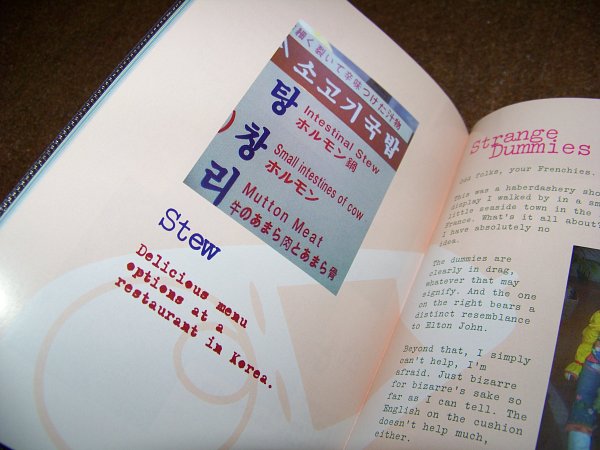 細く裂いて辛味つけた汁物
소고기국밥
탕
Intestinal Stew
ホルモン鍋
창
Small intestines of cow
ホルモン
리
Mutton Meat
牛のあまら肉とあまら骨
Stew
Delicious menu
options at a
restaurant in Korea.
Strange
Dummies
Odd folks, your Frenchies.
This was a haberdashery sho
display I walked by in a sm
little seaside town in the
France. What's it all about?
I have absolutely no
idea.
The dummies are
clearly in drag,
whatever that may
signify. And the one
on the right bears a
distinct resemblance
to Elton John.
Beyond that, I simply
can't help, I'm
afraid. Just bizarre
for bizarre's sake so
far as I can tell. The
English on the cushion
doesn't help much,
either.